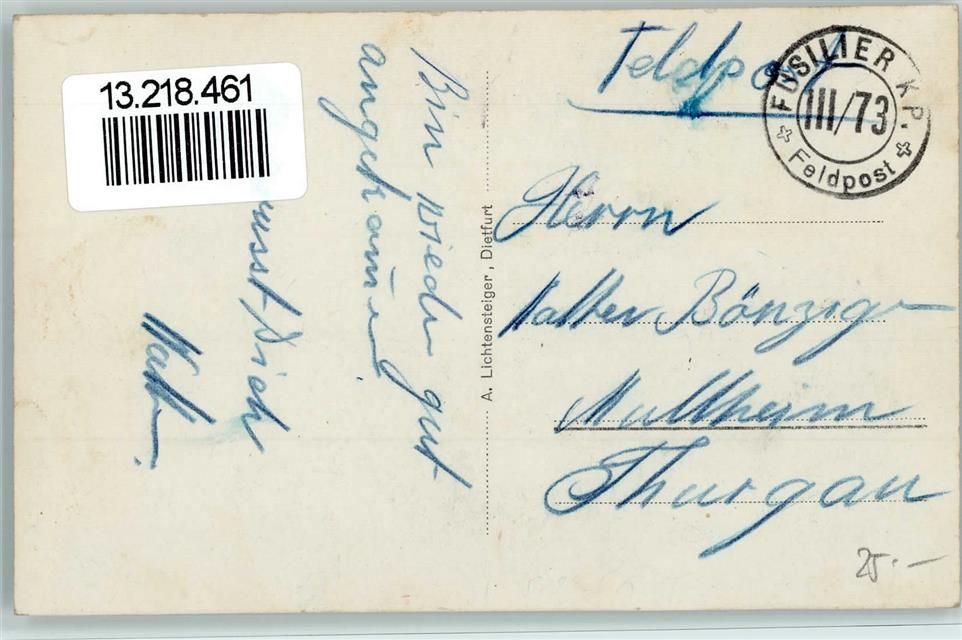 13.218.461
Feldpost
FÜSILIER KP.
III/73
Feldpost
Bin wieder gut
angekommen
Dich
A. Lichtensteiger, Dietfurt
Herrn
Bönziger
Müllheim
Thurgau
25.-